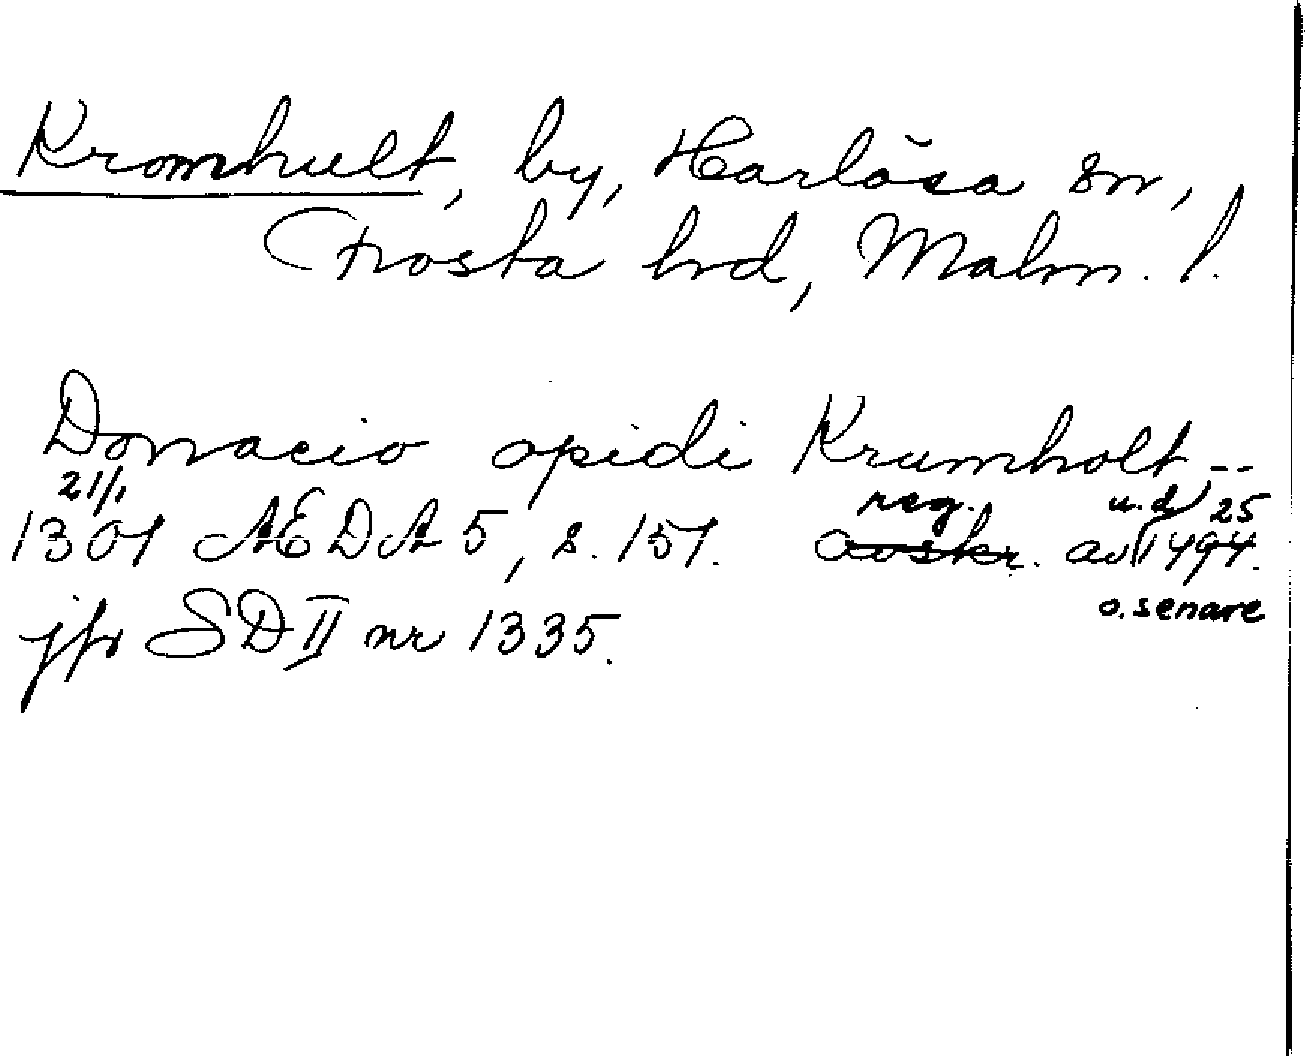 Kromhult, by, Harlösa sn,
Frosta hrd, Malm. l.
Donacio opidi Krumholt --
21/1 reg. u.d/ 25
1301 AEDA 5, s. 151. avskr. av 1494.
o. senare
jfr SD II nr 1335.